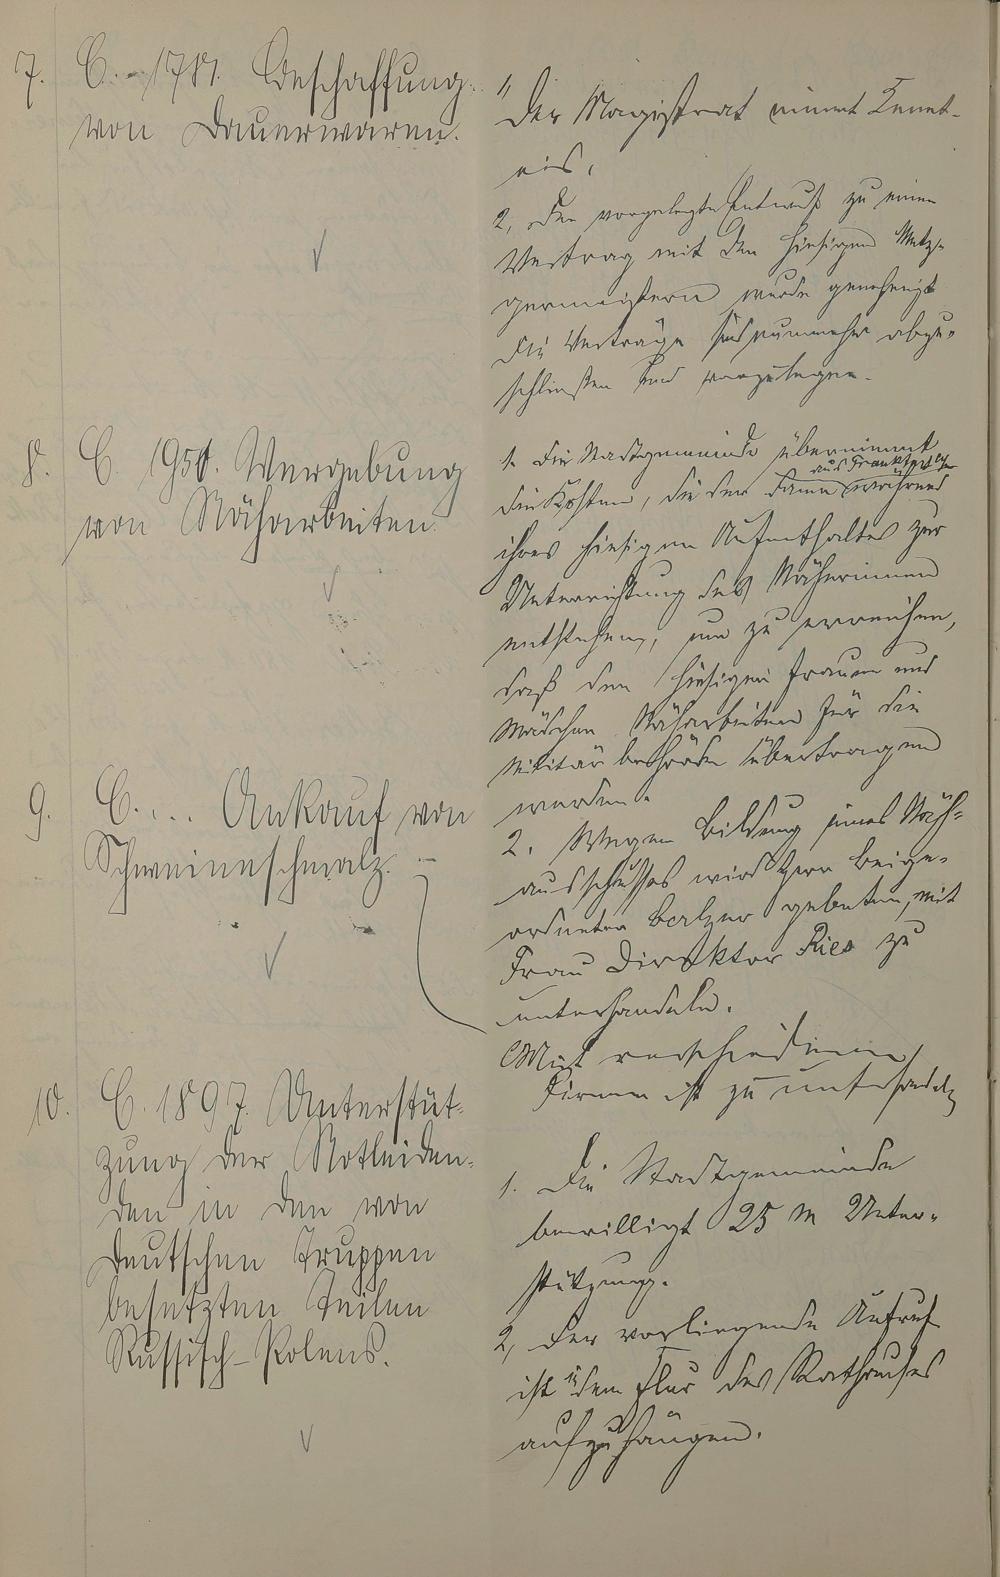 7. C. 1781. Beschaffung
von Dauerwaren.
1, Der Magistrat nimmt Kennt-
nis.
2, Der vorgelegte Entwurf zu einem
Vertrag mit den hiesigen Metz-
germeistern wurde genehmigt
Die Verträge sind nunmehr abzu-
schließen und vorzulegen.
8. C 1950. Vergebung
von Näharbeiten.
1. Die Stadtgemeinde übernimmt
die Kosten, die der Dame aus Frankfurt während
ihres hiesigen Aufenthaltes zur
Unterrichtung der Näherinnen
entstehen, um zu erreichen,
daß den hiesigen Frauen und
Mädchen Näharbeiten für die
Militärbehörde übertragen
werden.
2. Wegen Bildung eines Näh-
ausschusses wird Herr Beige-
ordneter Balzer gebeten, mit
Frau Direktor Ries zu
unterhandeln.
9. C.... Ankauf von
Schweineschmalz.
Mit verschiedenen
Firmen ist zu unterhandeln
10. C. 1897. Unterstüt-
zung der Notleiden-
den in den von
deutschen Truppen
besetzten Teilen
Russisch-Polens.
1. Die Stadtgemeinde
bewilligt 25 M Unter-
stützung.
2, Der vorliegende Aufruf
ist in dem Flur des Rathauses
aufzuhängen.